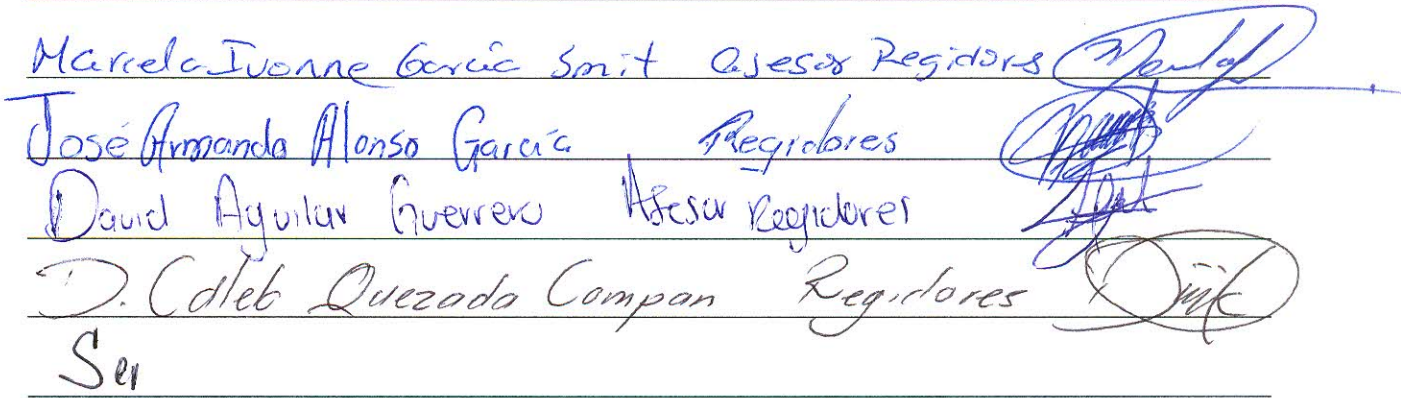 Marcela Ivonne García Smit Asesor Regidors
José Armando Alonso García Regidores
David Aguilar Guerrero Asesor Regidores
D. Caleb Quezada Compan Regidores
Ser